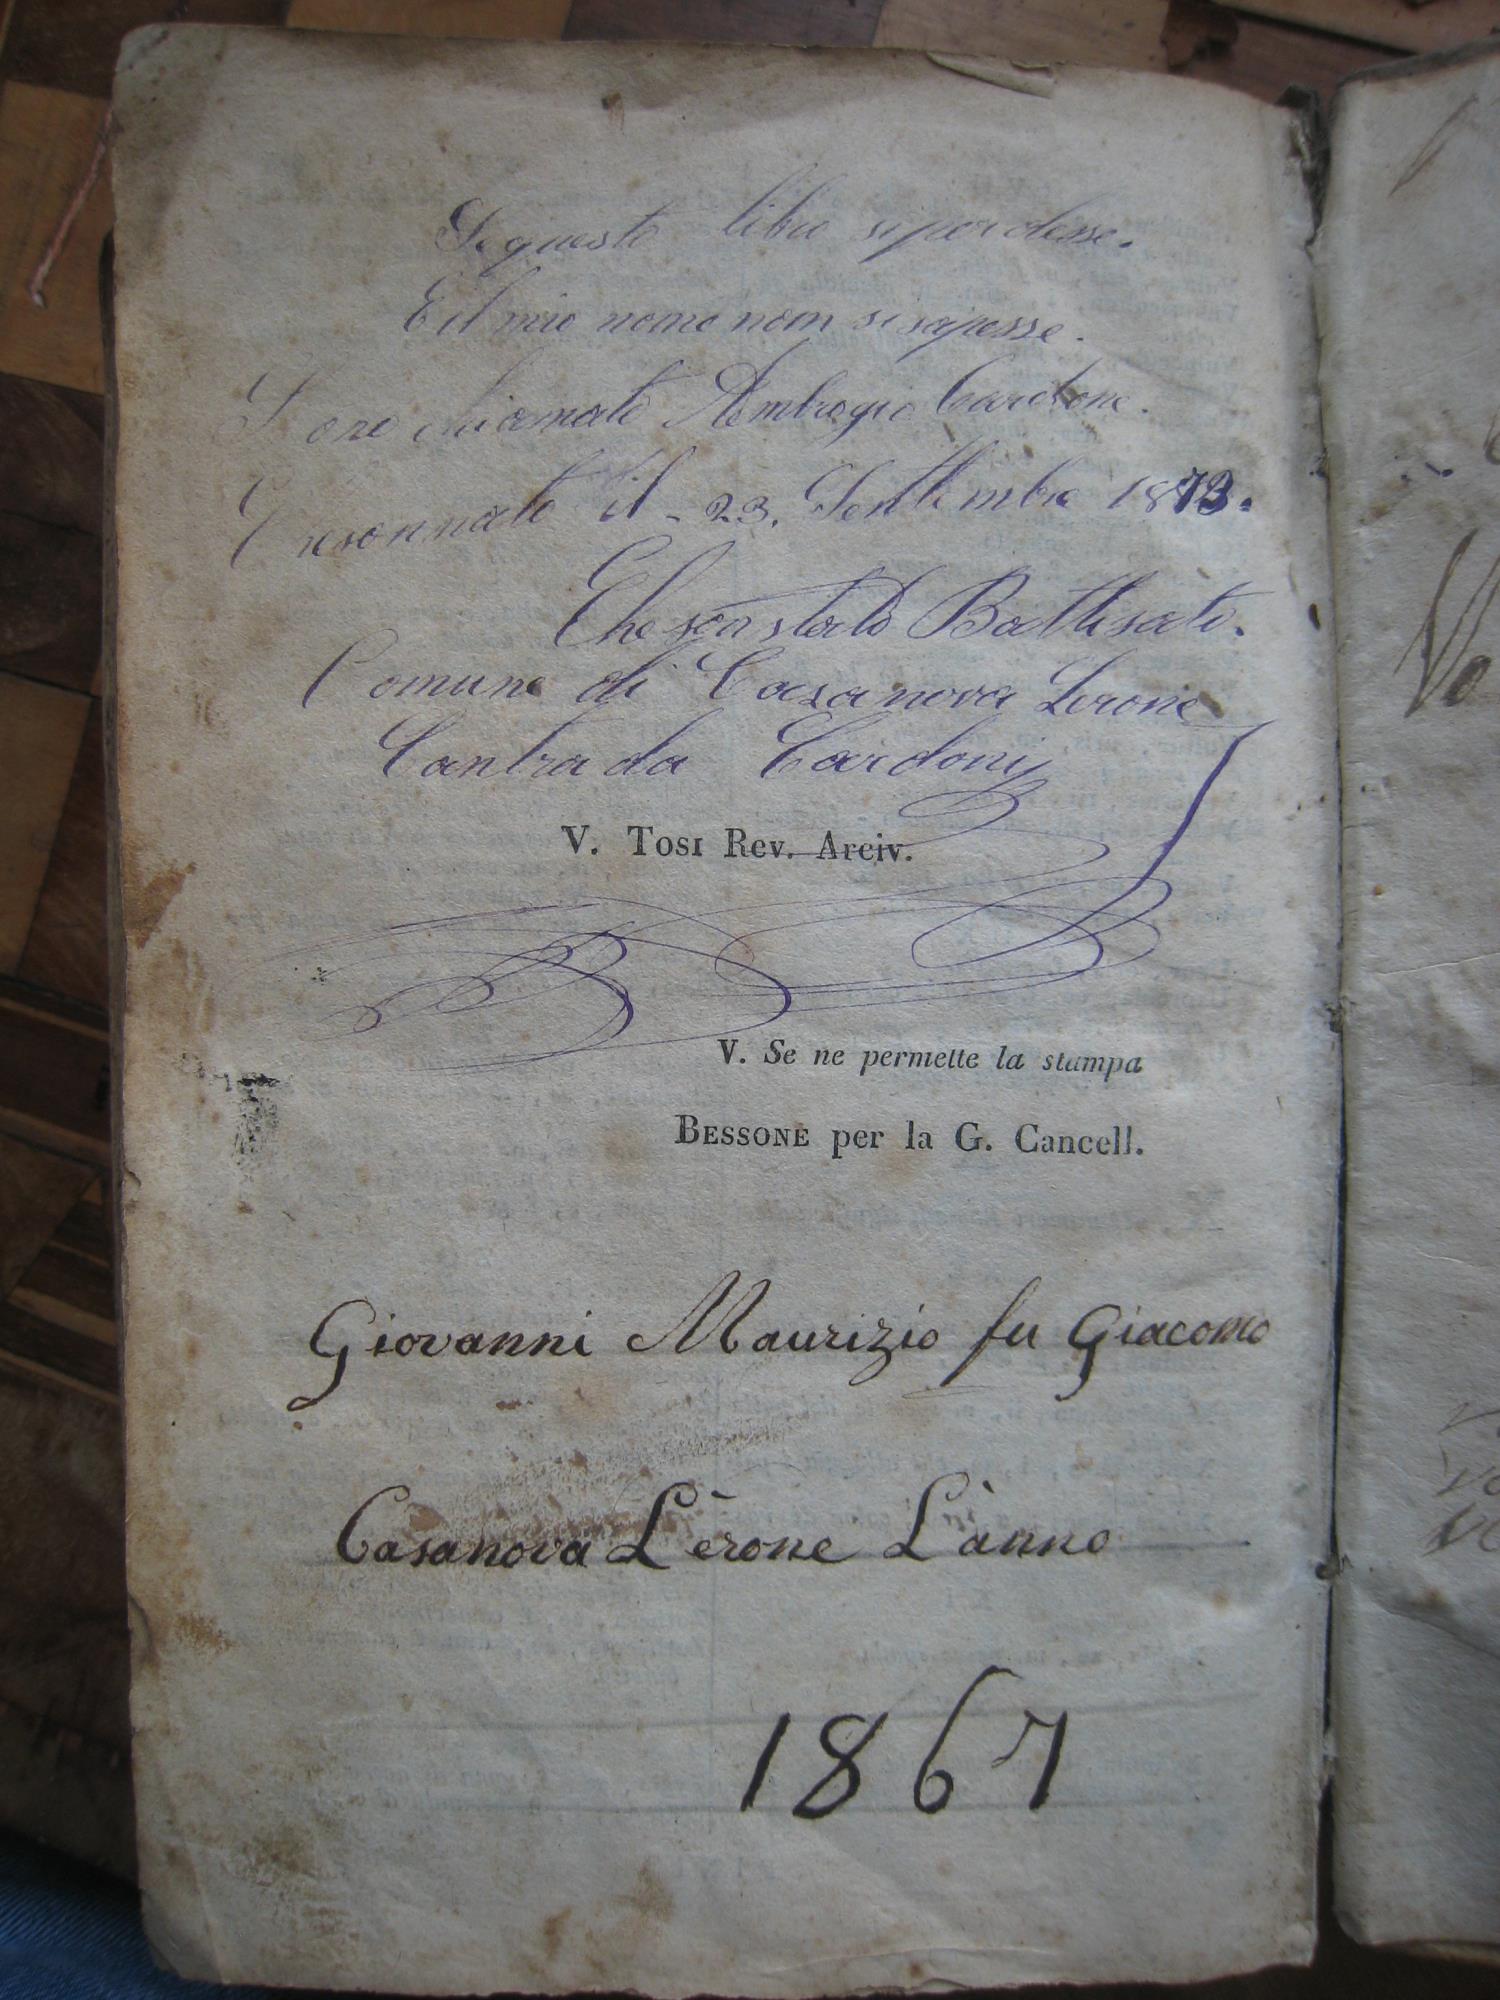 Se questo libro si perdesse.
E il mio nome nom si sapesse.
Sono chiamato Ambrogio Cardone.
E neson nato il - 23. Settembre 1873.
Che son stato Battisato.
Comune di Casanova Lerone
Contrada Cardoni
V. Tosi Rev. Arciv.
V. Se ne permette la stampa
Bessone per la G. Cancell.
Giovanni Maurizio fu Giacomo
Casanova Lèrone L'ànno
1867
Vo